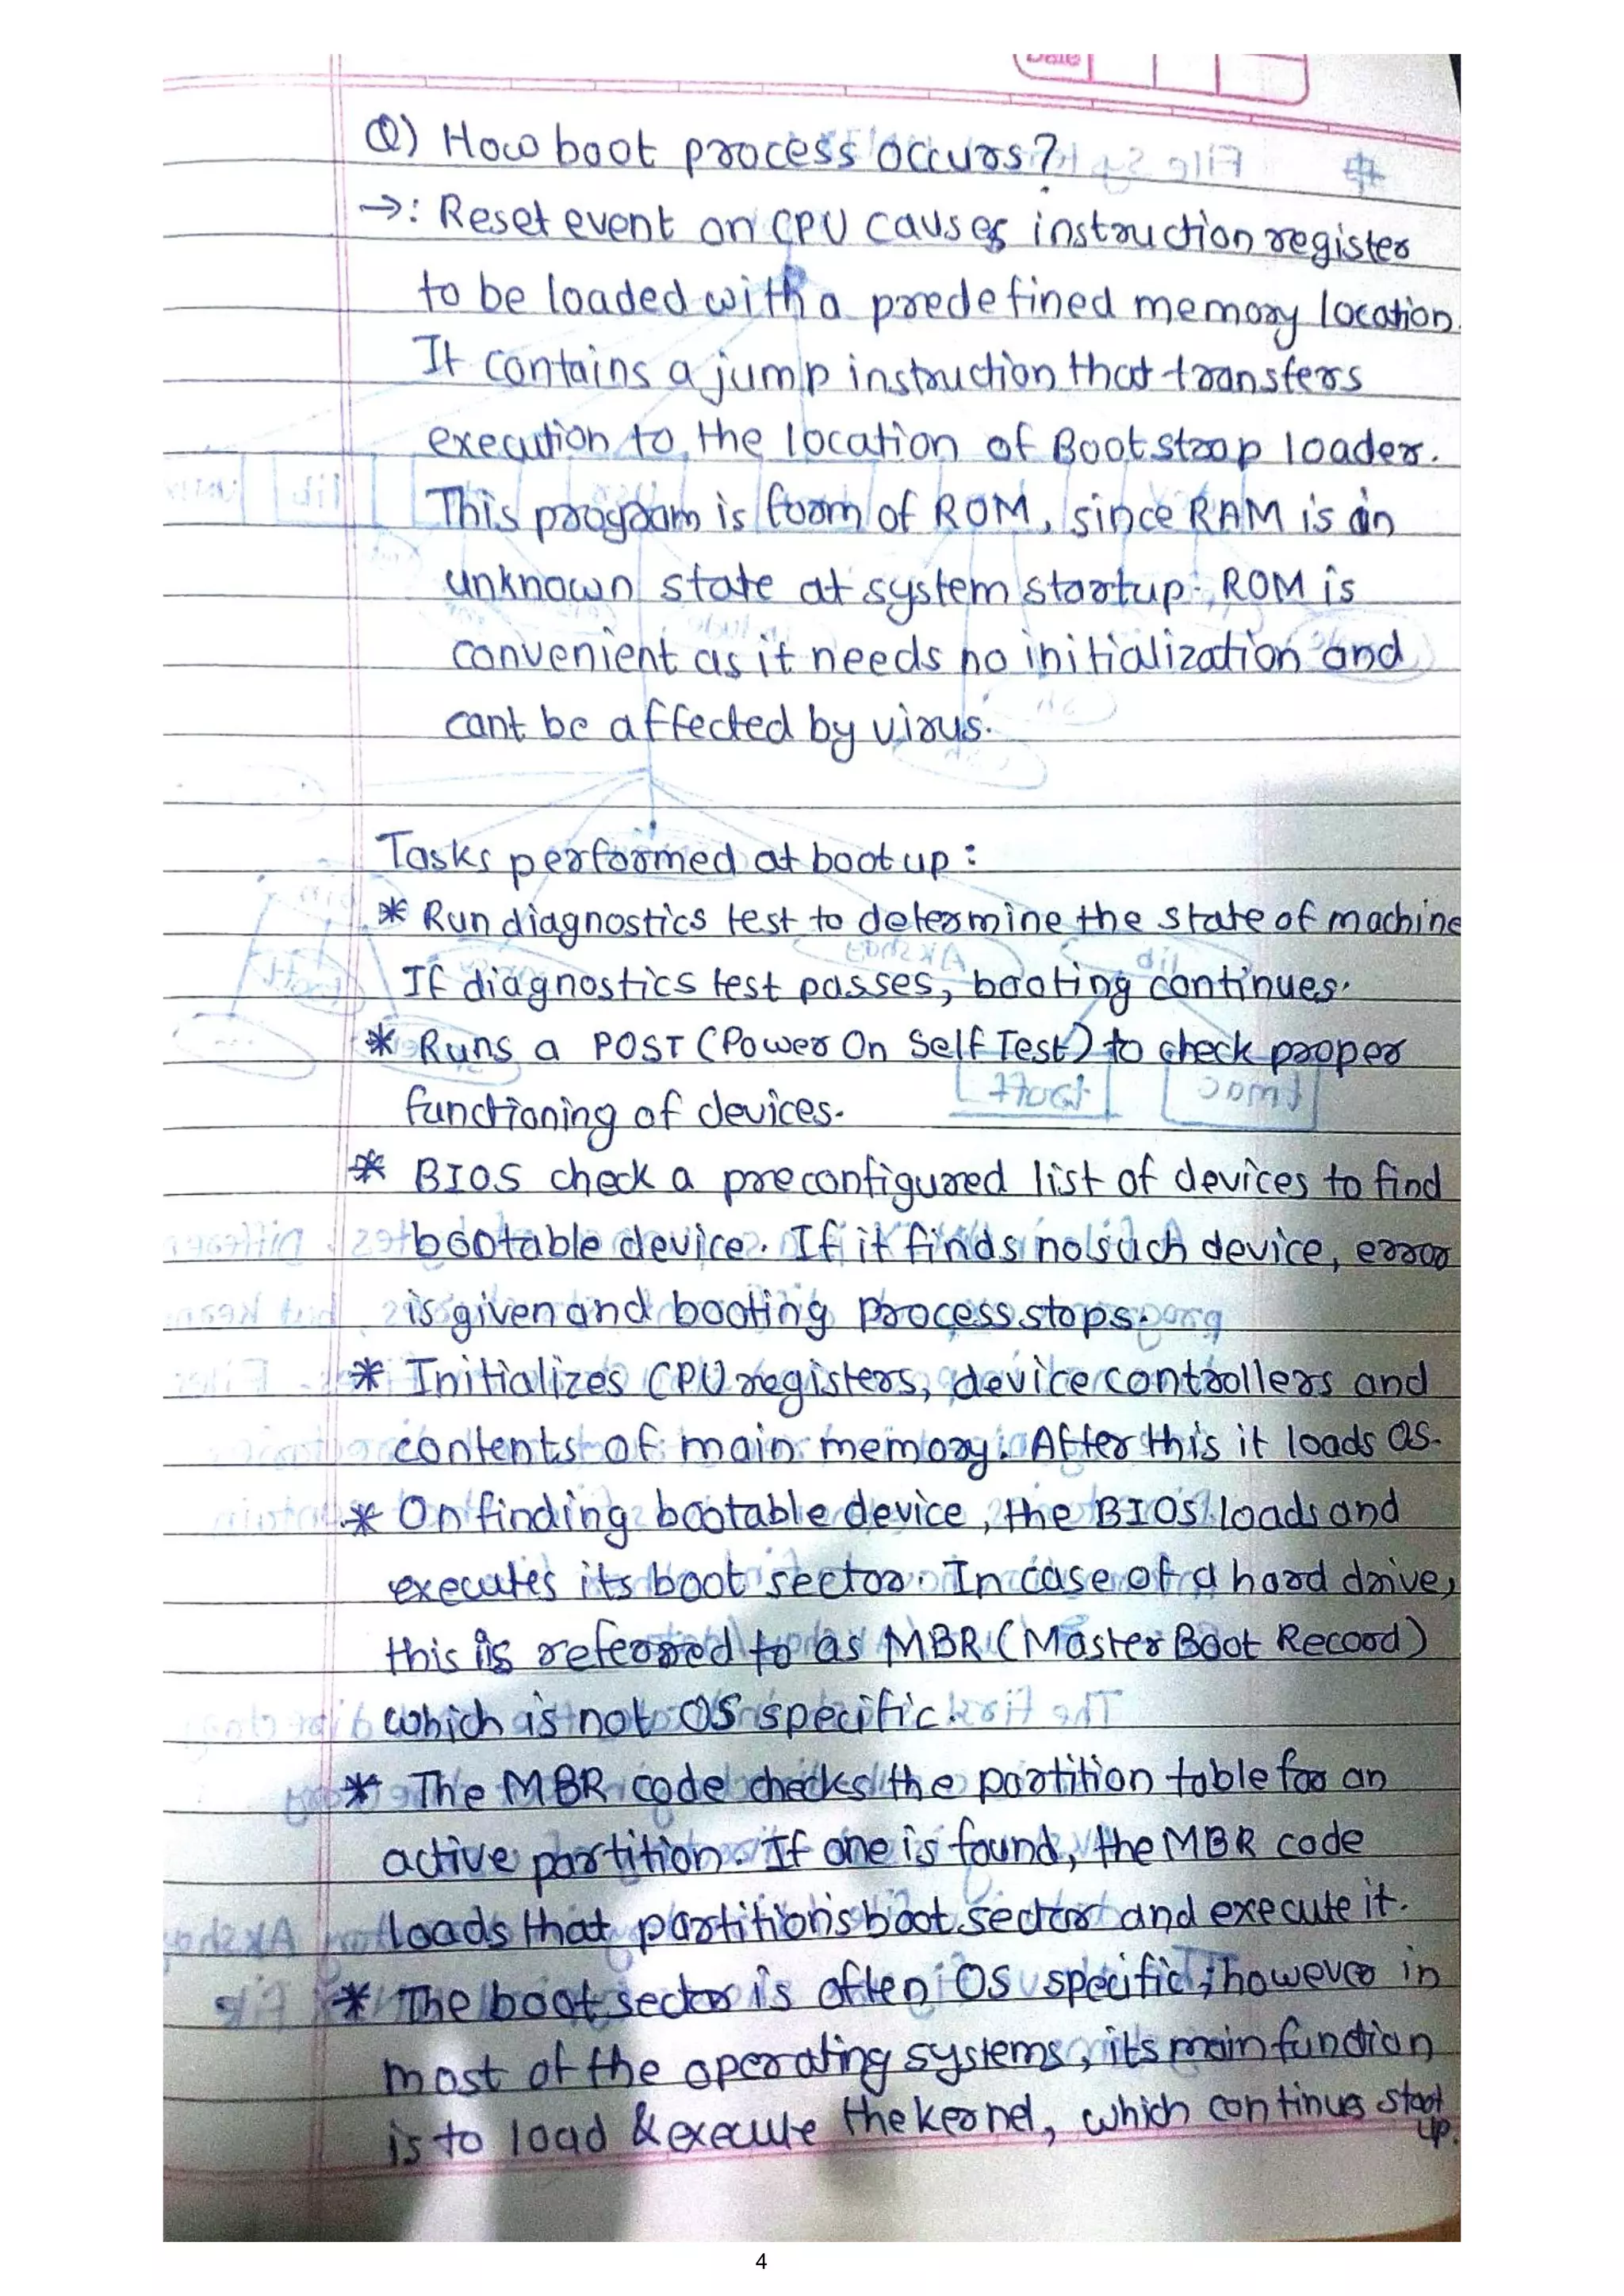 Date
Q) How boot process occurs?
→: Reset event on CPU causes instruction register
to be loaded with a predefined memory location.
It contains a jump instruction that transfers
execution to the location of Bootstrap loader.
This program is form of ROM, since RAM is in
unknown state at system startup. ROM is
convenient as it needs no initialization and
cant be affected by virus.
Tasks performed at boot up :
* Run diagnostics test to determine the state of machine
If diagnostics test passes, booting continues.
* Runs a POST (Power On Self Test) to check proper
functioning of devices.
* BIOS check a preconfigured list of devices to find
bootable device. If it finds no such device, error
is given and booting process stops.
* Initializes CPU registers, device controllers and
contents of main memory. After this it loads OS.
* On finding bootable device, the BIOS loads and
executes its boot sector. In case of a hard drive,
this is referred to as MBR (Master Boot Record)
which is not OS specific.
* The MBR code checks the partition table for an
active partition. If one is found, the MBR code
loads that partition's boot sector and execute it.
* The boot sector is often OS specific; however in
most of the operating systems, its main function
is to load & execute the kernel, which continues start
up.
4